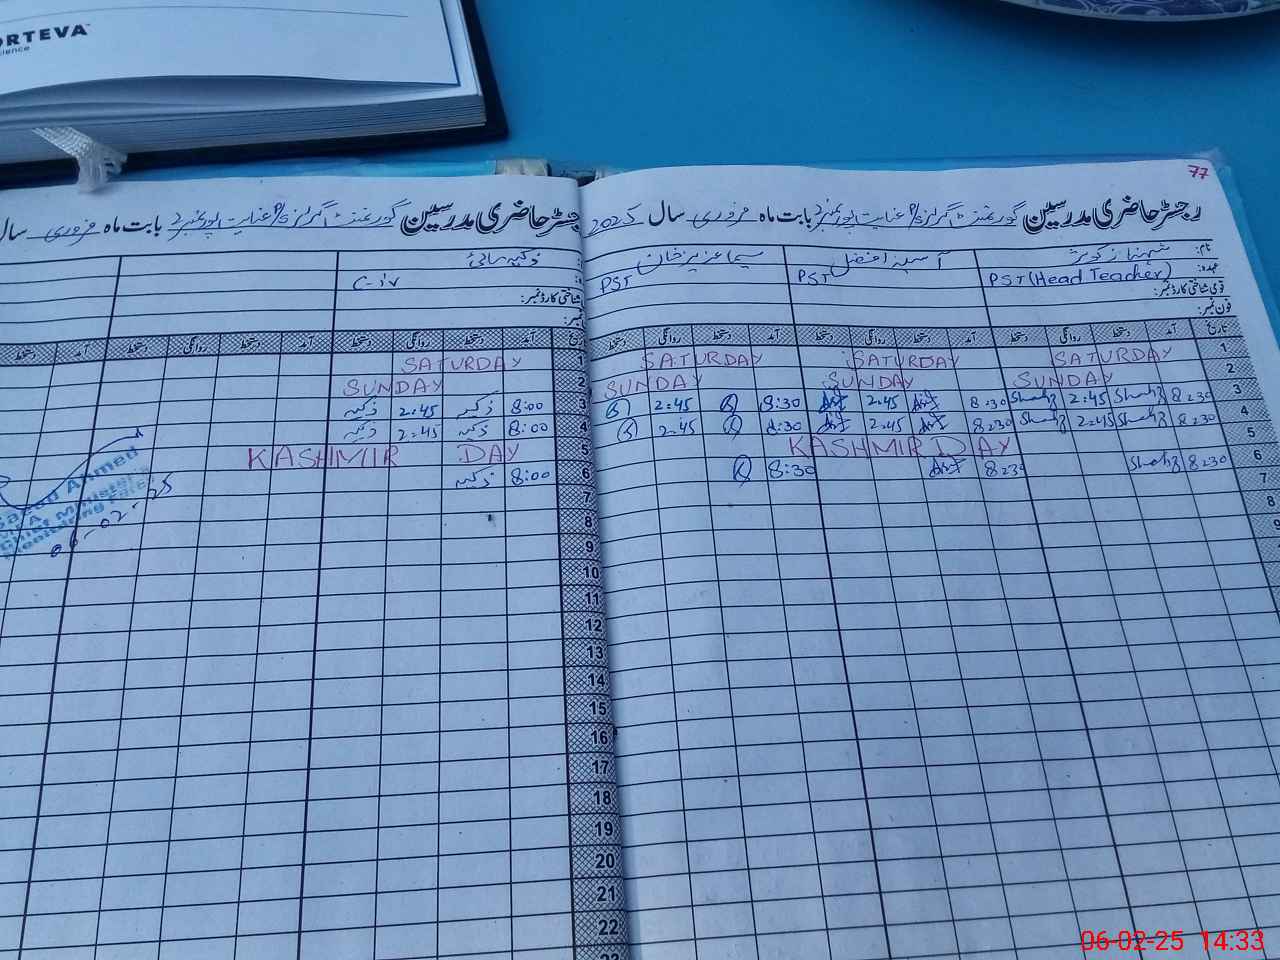 ORTEVA™
science
77
رجسٹر حاضری مدرسین گورنمنٹ گرلز P/S عنایت پور نمبر 2 بابت ماہ فروری سال 2025
نام: شہناز کوثر
آسیہ افضل
سیما عزیز خان
عہدہ: PST (Head Teacher)
PST
PST
قومی شناختی کارڈ نمبر:
فون نمبر:
تاریخ آمد دستخط روانگی دستخط آمد دستخط روانگی دستخط آمد دستخط روانگی دستخط
1 SATURDAY SATURDAY SATURDAY
2 SUNDAY SUNDAY SUNDAY
3 8:30 Shahz 2:45 Shahz 8:30 2:45 8:30 2:45
4 8:30 Shahz 2:45 Shahz 8:30 2:45 8:30 2:45
5 KASHMIR DAY
6 8:30 Shahz 8:30 8:30
7
8
9
رجسٹر حاضری مدرسین گورنمنٹ گرلز P/S عنایت پور نمبر 2 بابت ماہ فروری سال
ذکیہ
C-iv
شناختی کارڈ نمبر:
نمبر:
آمد دستخط روانگی دستخط آمد دستخط روانگی دستخط آمد
1 SATURDAY
2 SUNDAY
3 8:00 ذکیہ 2:45 ذکیہ
4 8:00 ذکیہ 2:45 ذکیہ
5 KASHMIR DAY
6 8:00 ذکیہ
7
8
9
10
11
12
13
14
15
16
17
18
19
20
21
22
23
Ahmed
06-02-25
06-02-25 14:33